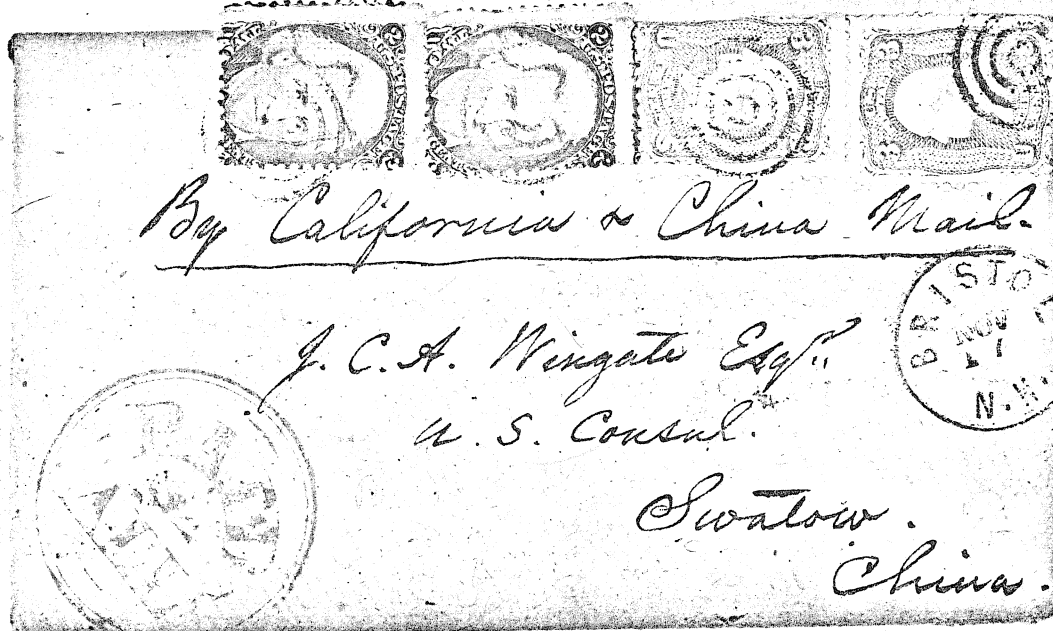 By California & China Mail.
BRISTO
NOV
17
N.H.
J. C. A. Wingate Esqr.
U. S. Consul.
Swatow.
China.